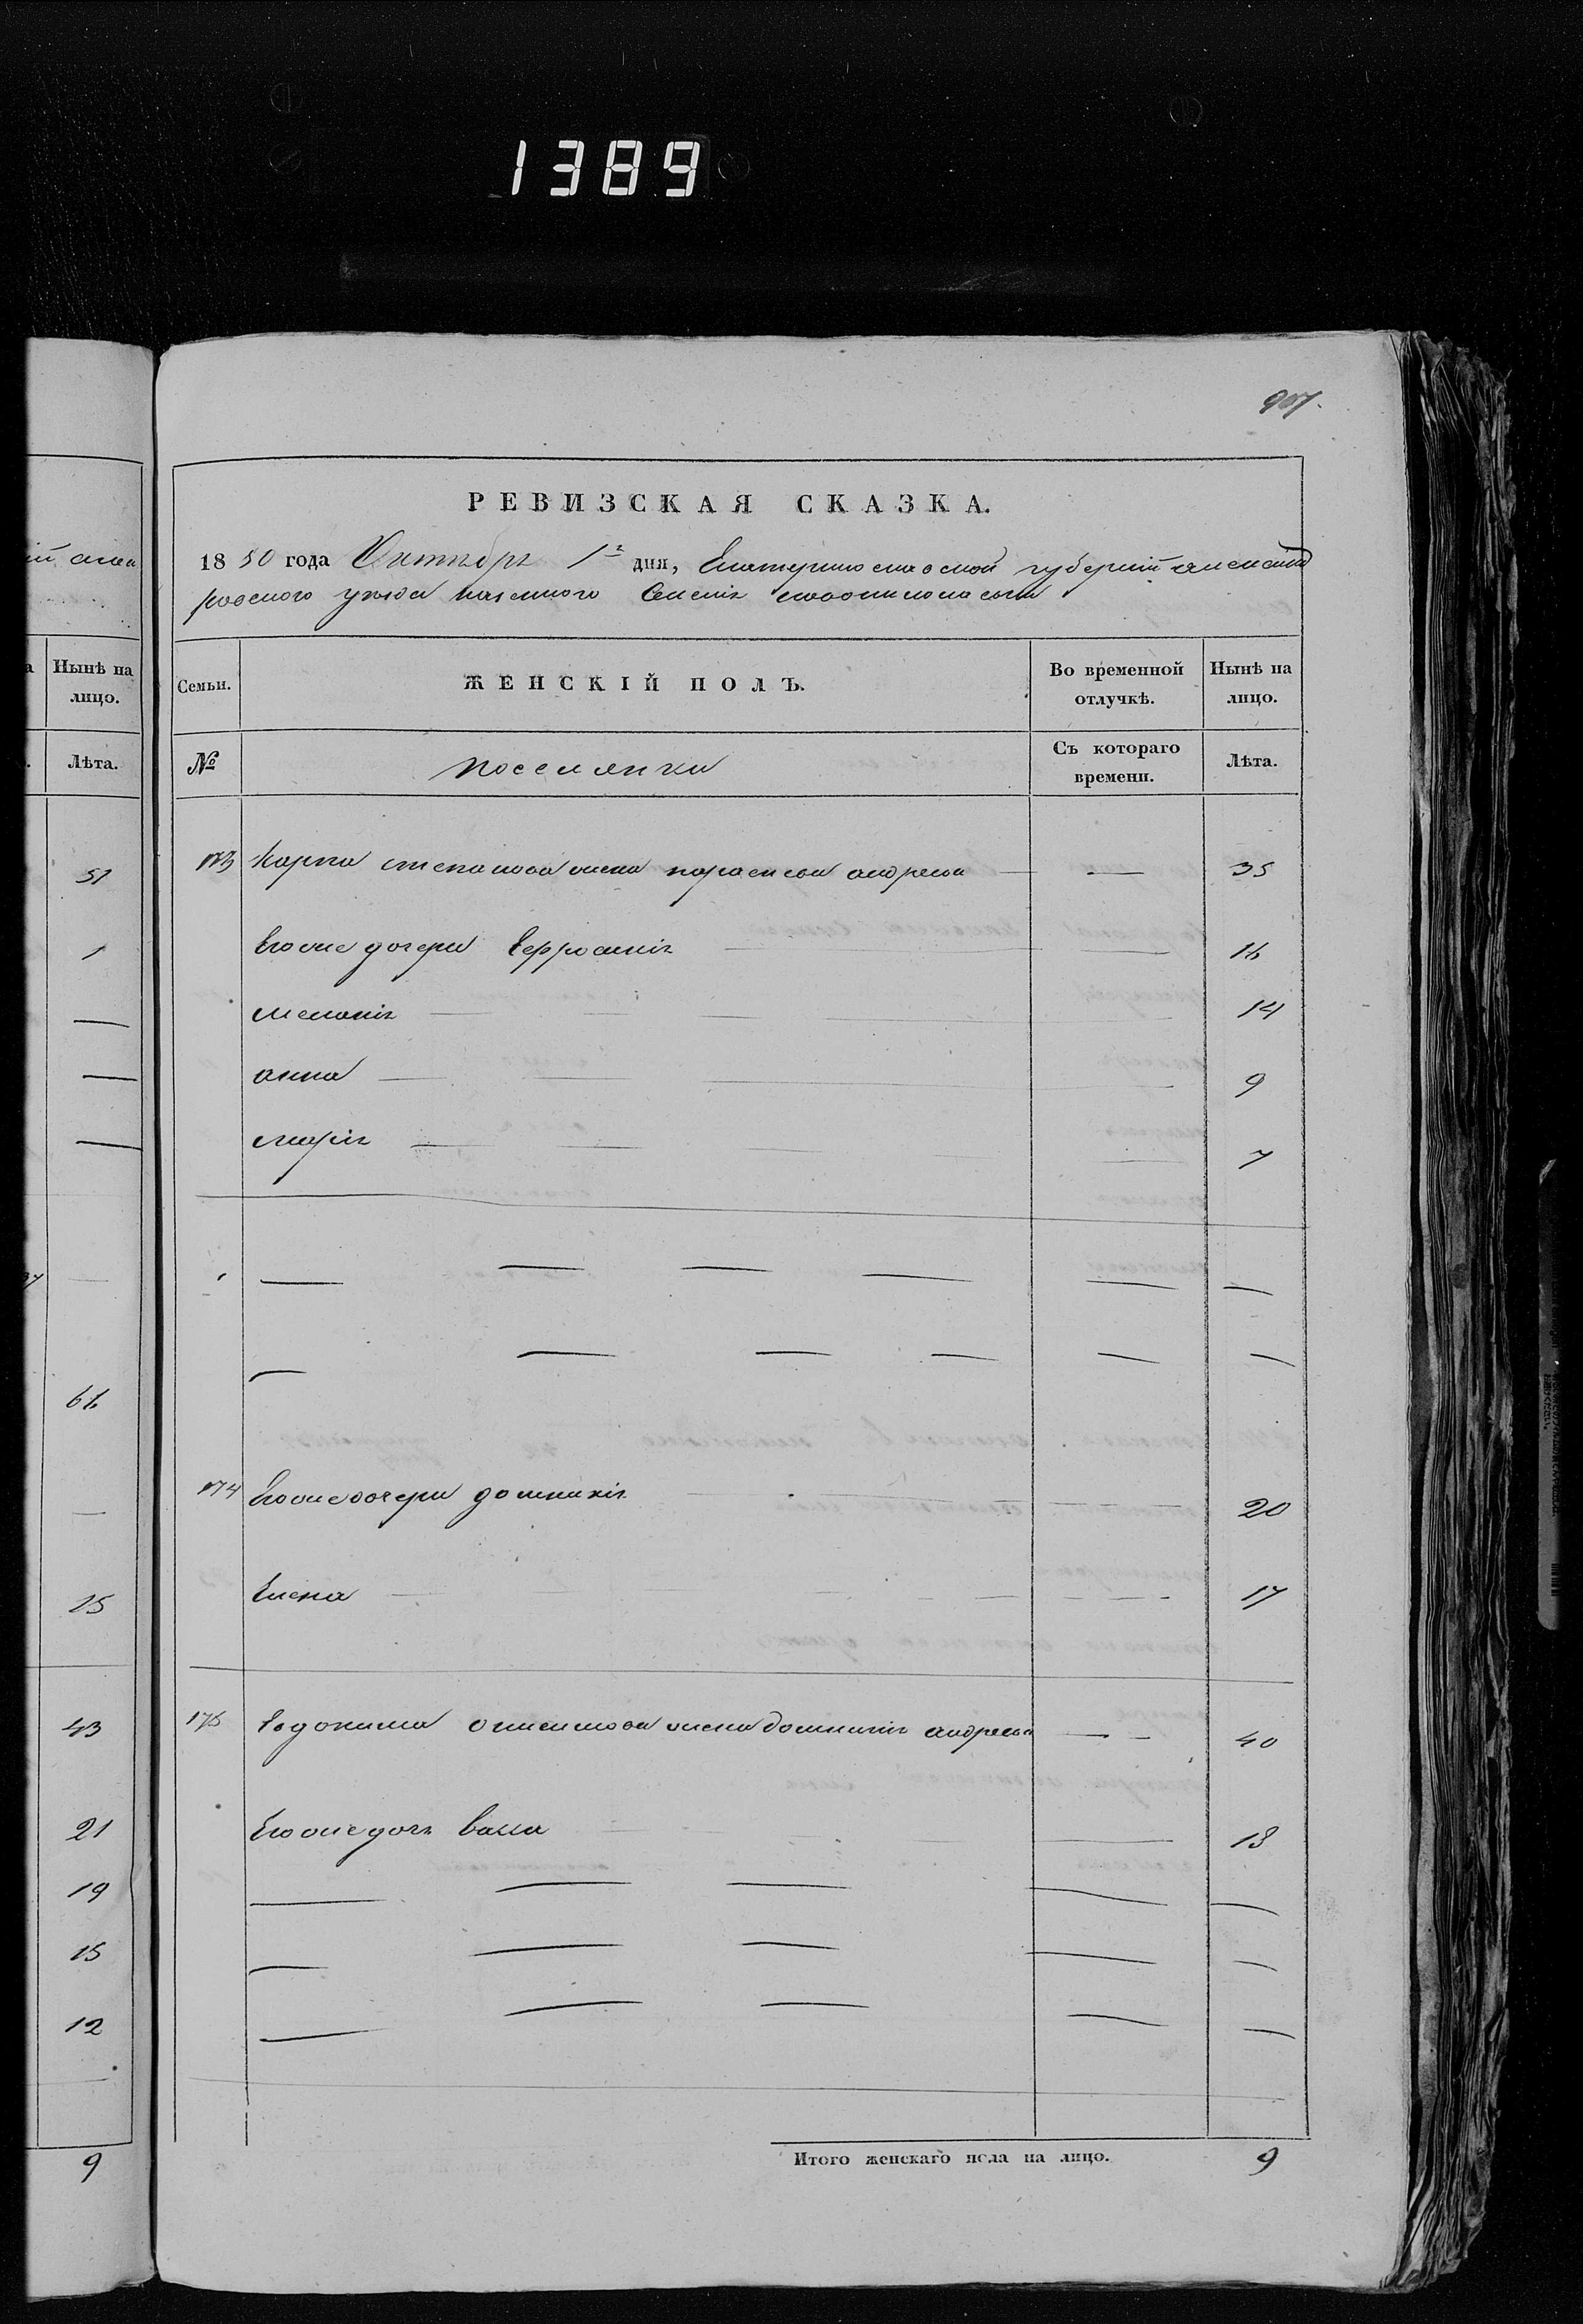 1389
907.
ій алек
РЕВИЗСКАЯ СКАЗКА.
1850 года Октября 1го дня, Екатеринославской губерній александ
ровского уезда казенного Селенія
а Нынѣ на лицо.
Лѣта.
51
1
—
—
—
—
66
—
15
43
21
19
15
12
9
Семьи.
ЖЕНСКІЙ ПОЛЪ.
Во временной отлучкѣ.
Нынѣ на лицо.
№
поселянки
Съ котораго времени.
Лѣта.
173 Карпа степанова жена параскева андреева — — 35
Его же дочери Ефросинія — — 16
меланія — — 14
анна — — 9
марія — — 7
— — — — — —
— — — — — —
174 Его же дочери домникія — — 20
Елена — — 17
175 Евдокима онисимова жена домникія андреева — — 40
Его же дочь Васса — — 18
— — — — —
— — — — —
— — — — —
Итого женскаго пола на лицо. 9